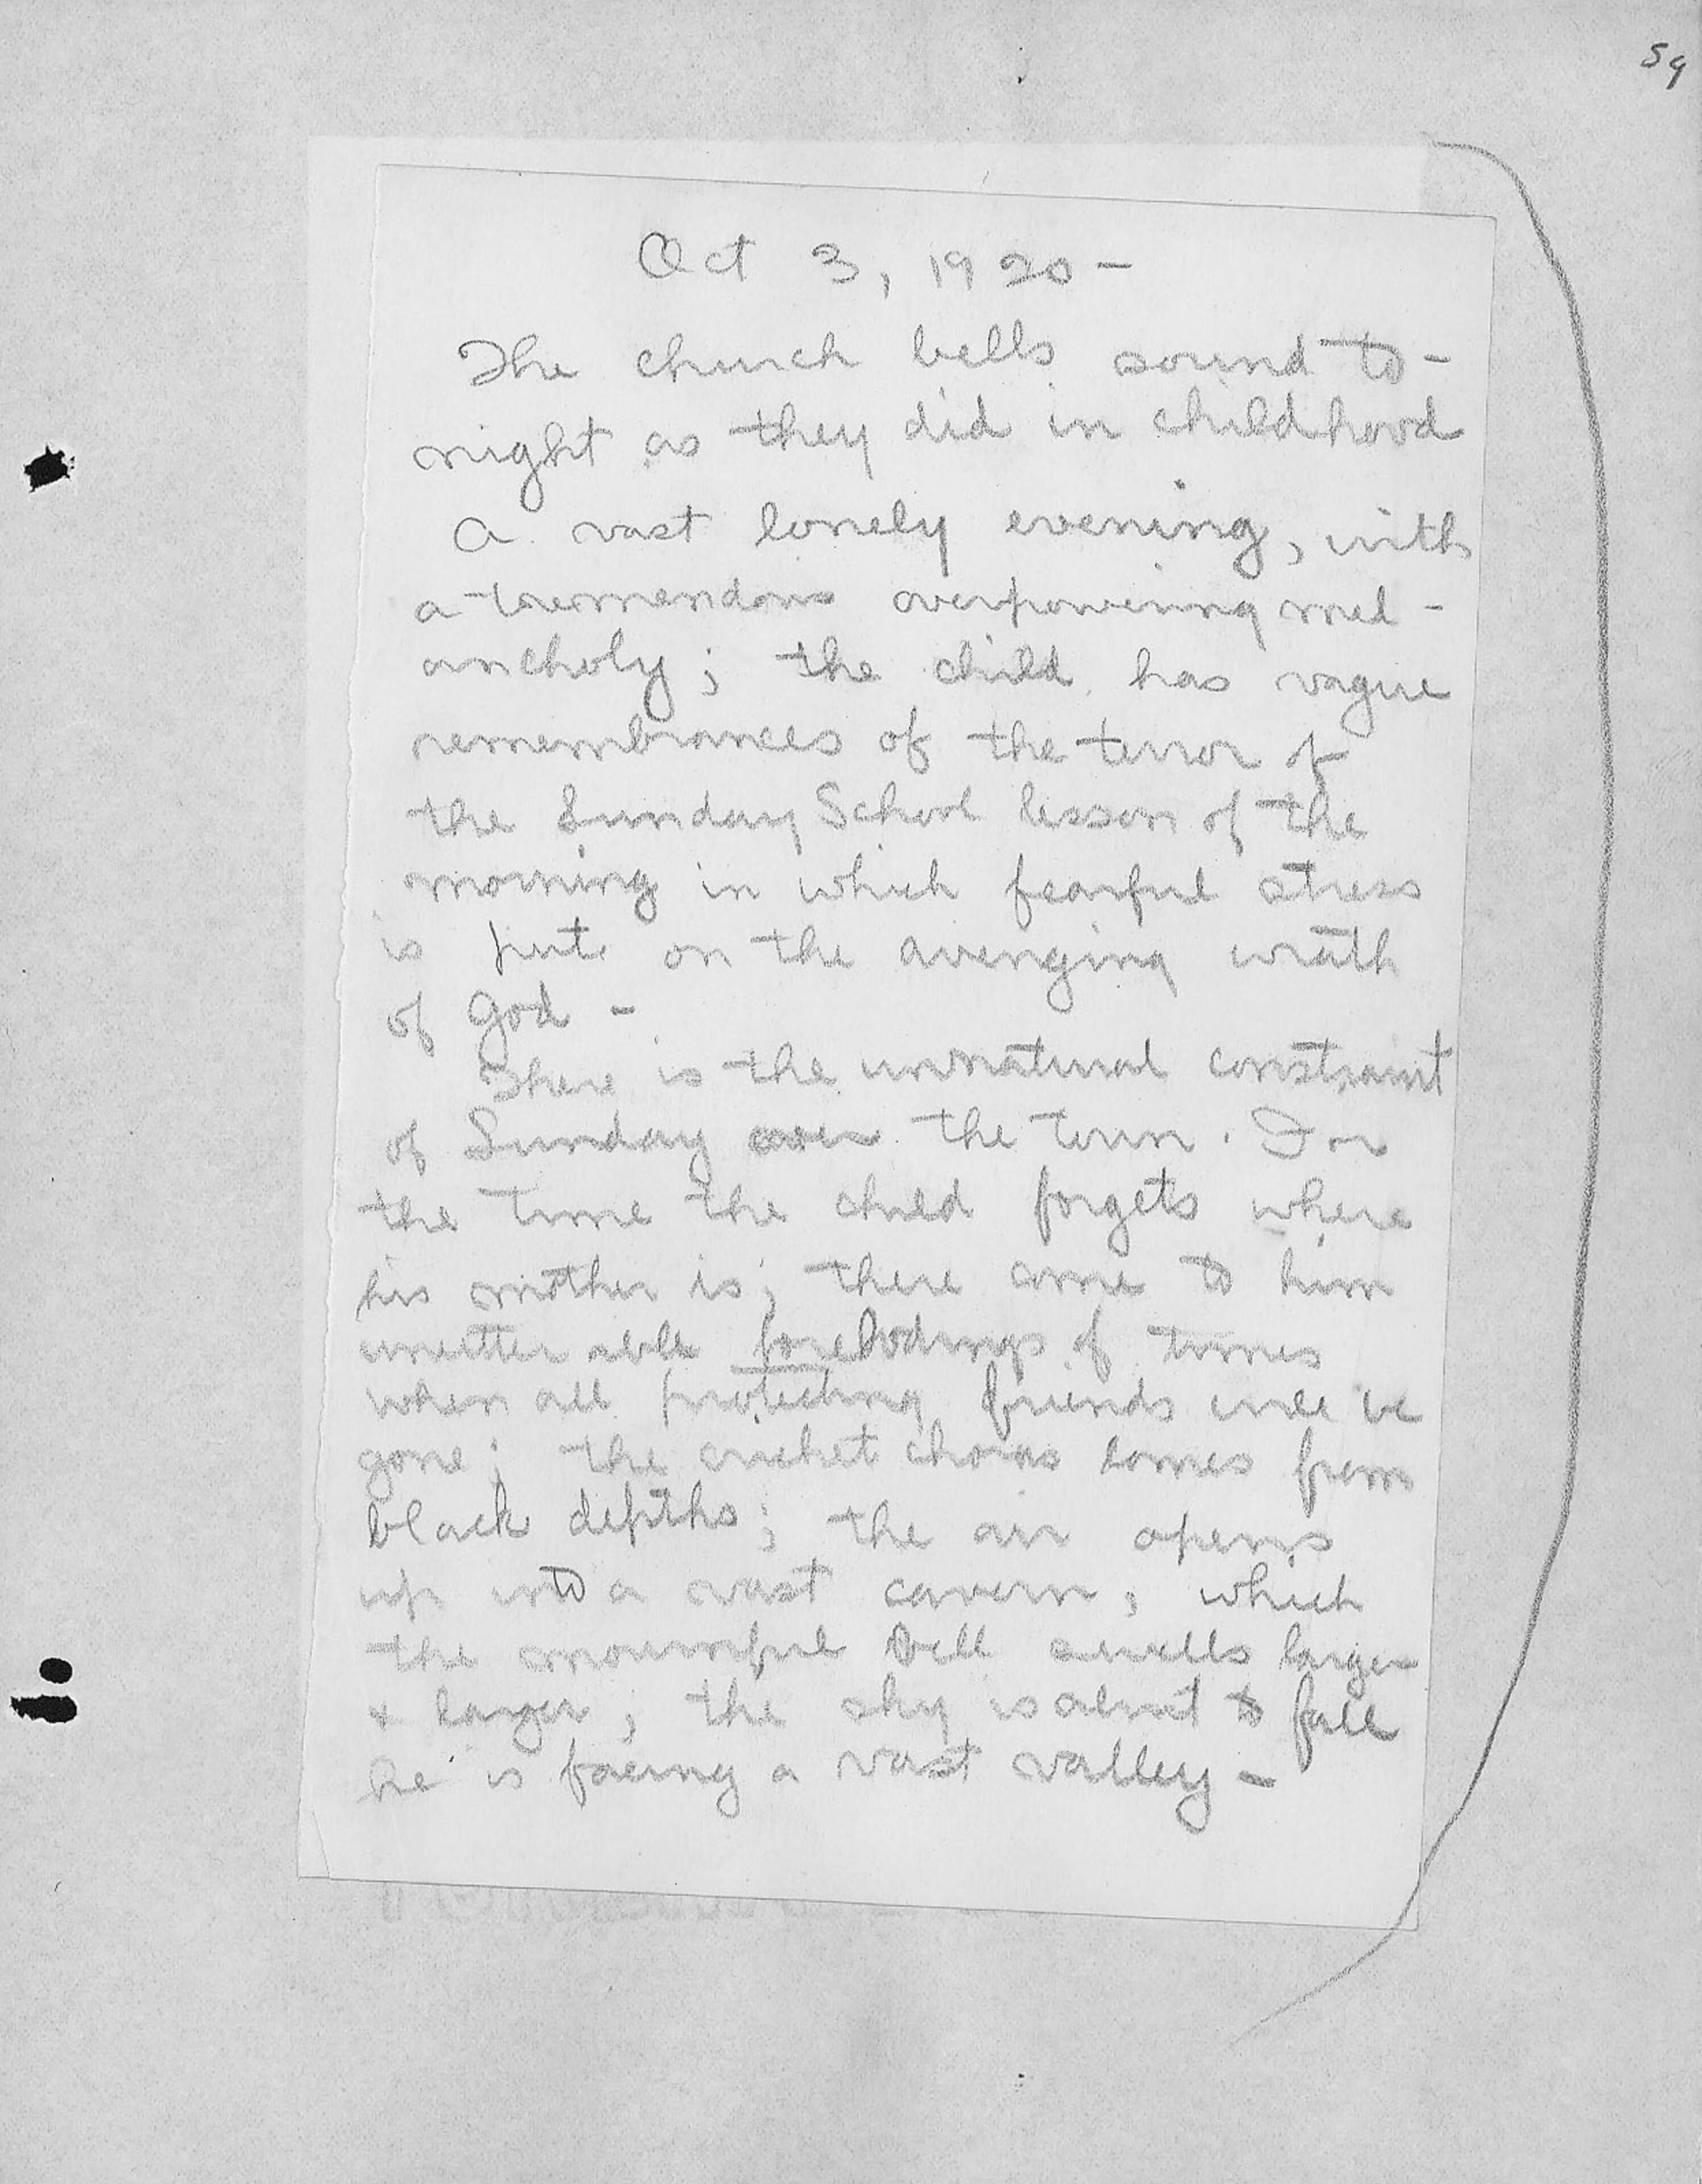 59
Oct 3, 1920 –
The church bells sound to-
night as they did in childhood
A vast lonely evening, with
a tremendous overpowering mel-
ancholy; the child has vague
remembrances of the terror of
the Sunday School lesson of the
morning in which fearful stress
is put on the avenging wrath
of God –
There is the unnatural constraint
of Sunday over the town. For
the time the child forgets where
his mother is; there come to him
unutterable forebodings of times
when all protecting friends will be
gone; the cricket chorus comes from
black depths; the air opens
up into a vast cavern, which
the mournful bell swells larger
+ larger; the sky is about to fall
he is facing a vast valley –